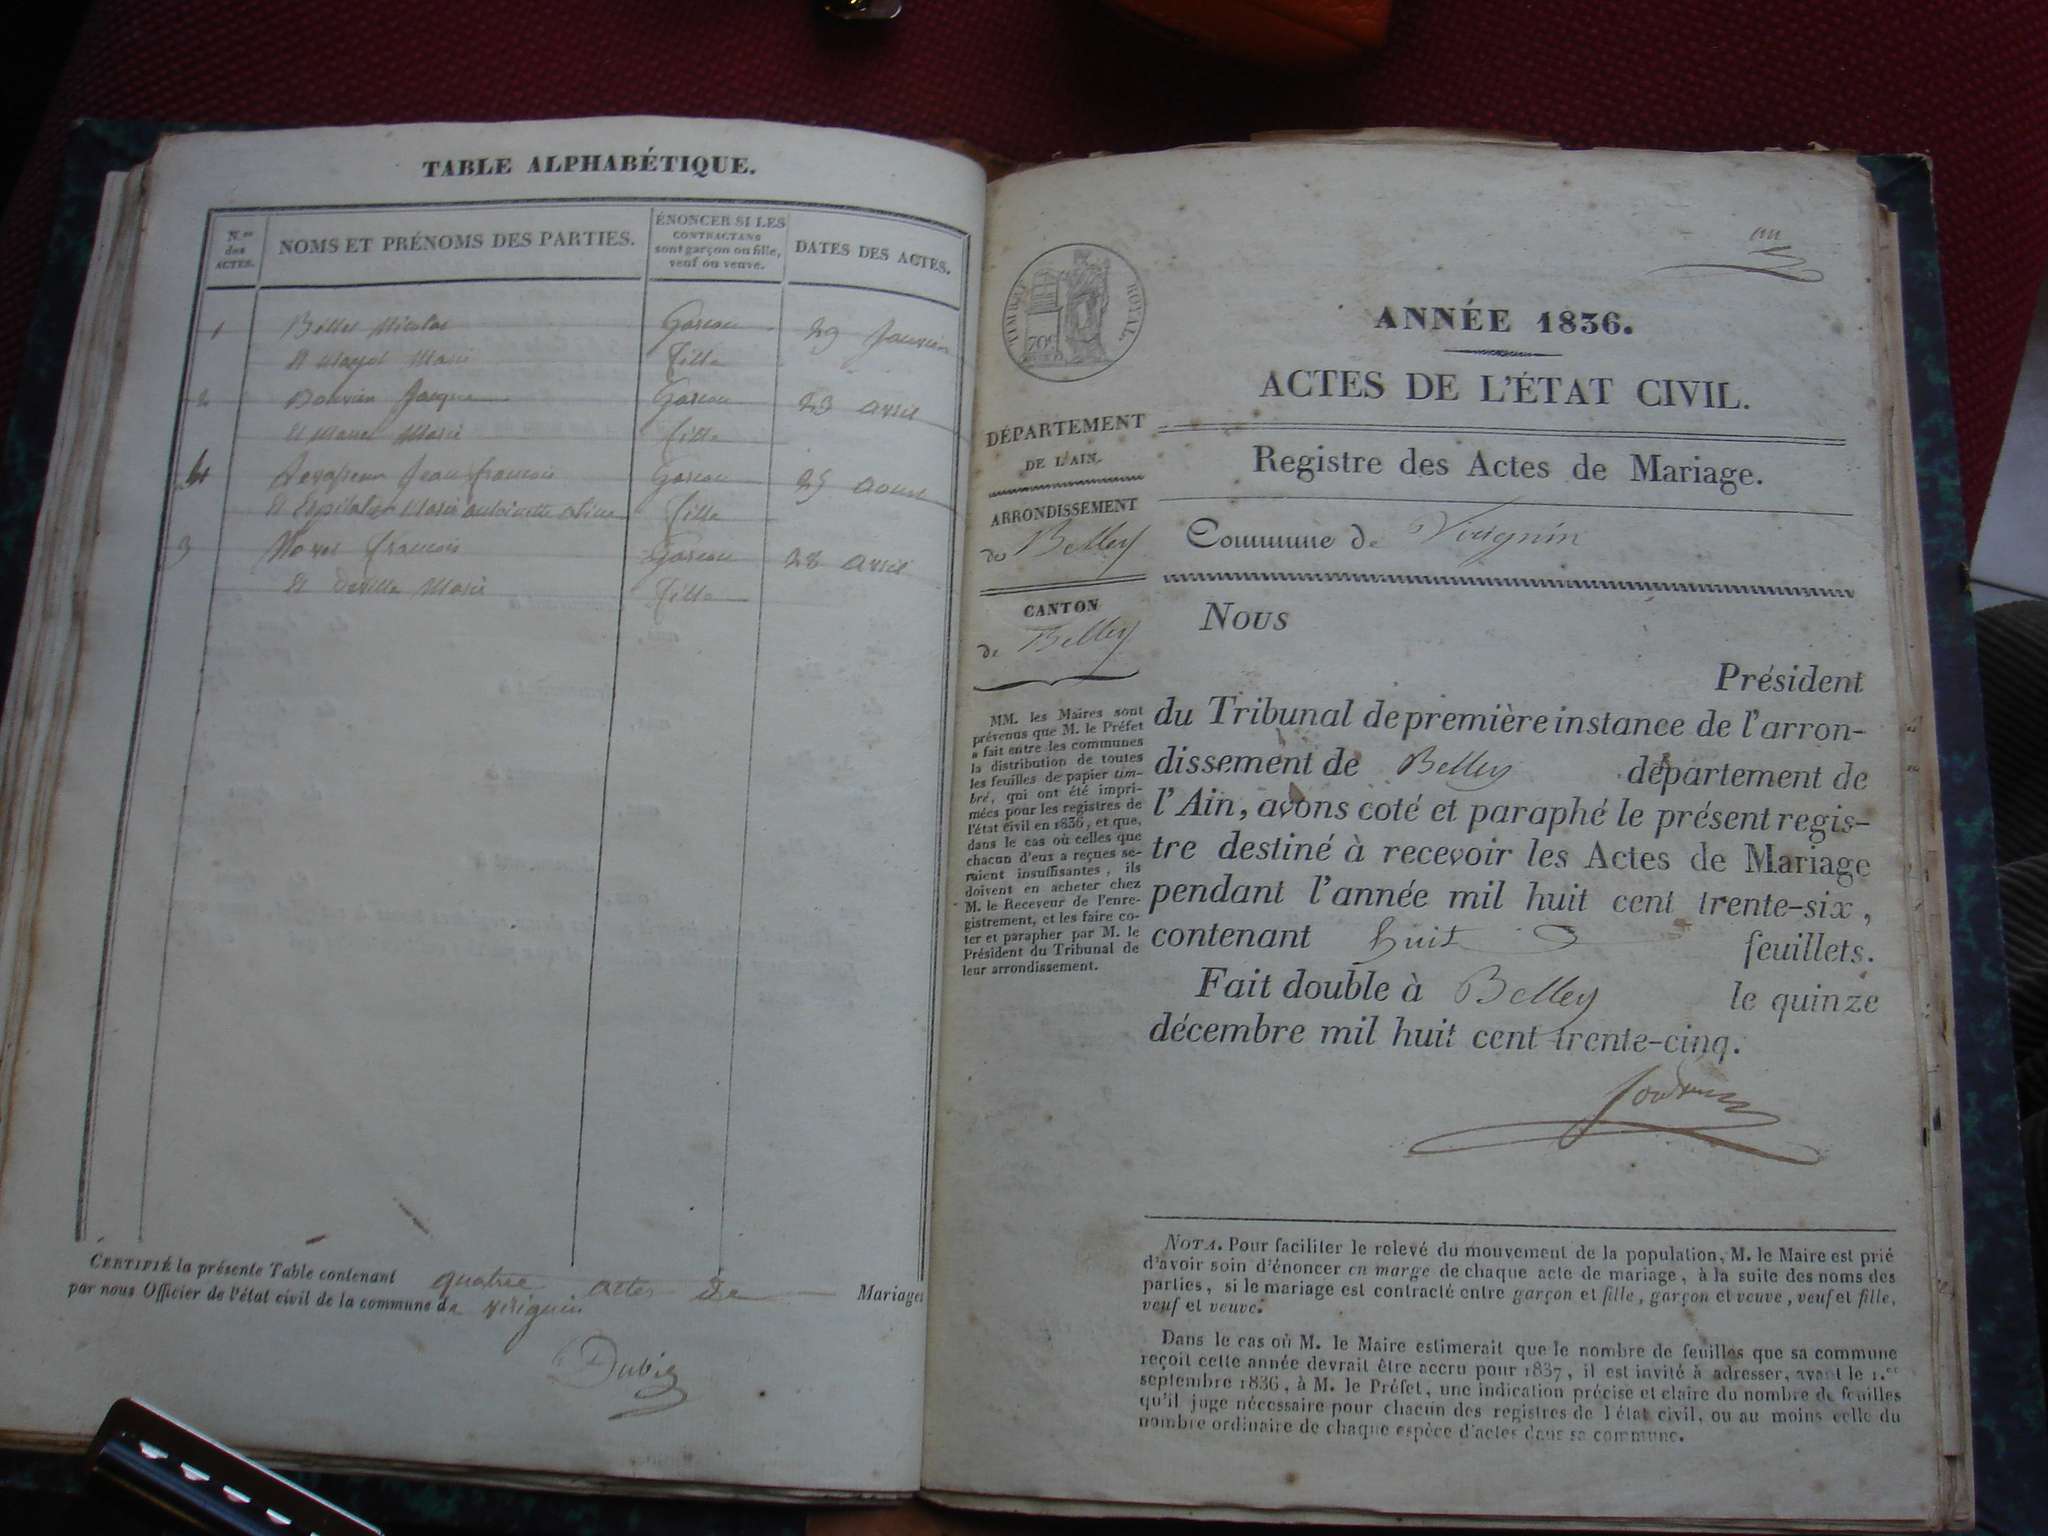 TABLE ALPHABÉTIQUE.
N.os des ACTES.
NOMS ET PRÉNOMS DES PARTIES.
ÉNONCER SI LES
CONTRACTANS
sont garçon ou fille,
veuf ou veuve.
DATES DES ACTES.
1 Nicolas Garcon 29 Janvier
et Marie fille
2 Jacques Garcon 23 avril
et Marie fille
4 Levasseur Jean francois Garcon 25 aout
et Espitalier Marie antoinette fille
3 francois Garcon 28 avril
et Deville Marie fille
CERTIFIÉ la présente Table contenant quatre actes de Mariages
par nous Officier de l'état civil de la commune de virignin
TIMBRE ROYAL
70c
ANNÉE 1836.
ACTES DE L'ÉTAT CIVIL.
DÉPARTEMENT
DE L'AIN.
ARRONDISSEMENT
de Belley
CANTON
de Belley
MM. les Maires sont
prévenus que M. le Préfet
a fait entre les communes
la distribution de toutes
les feuilles de papier tim-
bré, qui ont été impri-
mées pour les registres de
l'état civil en 1836, et que,
dans le cas où celles que
chacun d'eux a reçues se-
raient insuffisantes, ils
doivent en acheter chez
M. le Receveur de l'enre-
gistrement, et les faire co-
ter et parapher par M. le
Président du Tribunal de
leur arrondissement.
Registre des Actes de Mariage.
Commune de Virignin
Nous
Président
du Tribunal de première instance de l'arron-
dissement de Belley département de
l'Ain, avons coté et paraphé le présent regis-
tre destiné à recevoir les Actes de Mariage
pendant l'année mil huit cent trente-six,
contenant huit feuillets.
Fait double à Belley le quinze
décembre mil huit cent trente-cinq.
NOTA. Pour faciliter le relevé du mouvement de la population, M. le Maire est prié
d'avoir soin d'énoncer en marge de chaque acte de mariage, à la suite des noms des
parties, si le mariage est contracté entre garçon et fille, garçon et veuve, veuf et fille,
veuf et veuve.
Dans le cas où M. le Maire estimerait que le nombre de feuilles que sa commune
reçoit cette année devrait être accru pour 1837, il est invité à adresser, avant le 1.er
septembre 1836, à M. le Préfet, une indication précise et claire du nombre de feuilles
qu'il juge nécessaire pour chacun des registres de l'état civil, ou au moins celle du
nombre ordinaire de chaque espèce d'actes dans sa commune.